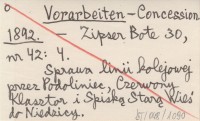 Vorarbeiten - Concession
1892. - Zipser Bote 30,
nr 42: 4.
Sprawa linii kolejowej
przez Podoliniec, Czerwony
Klasztor i Spiską Starą Wieś
do Niedzicy.